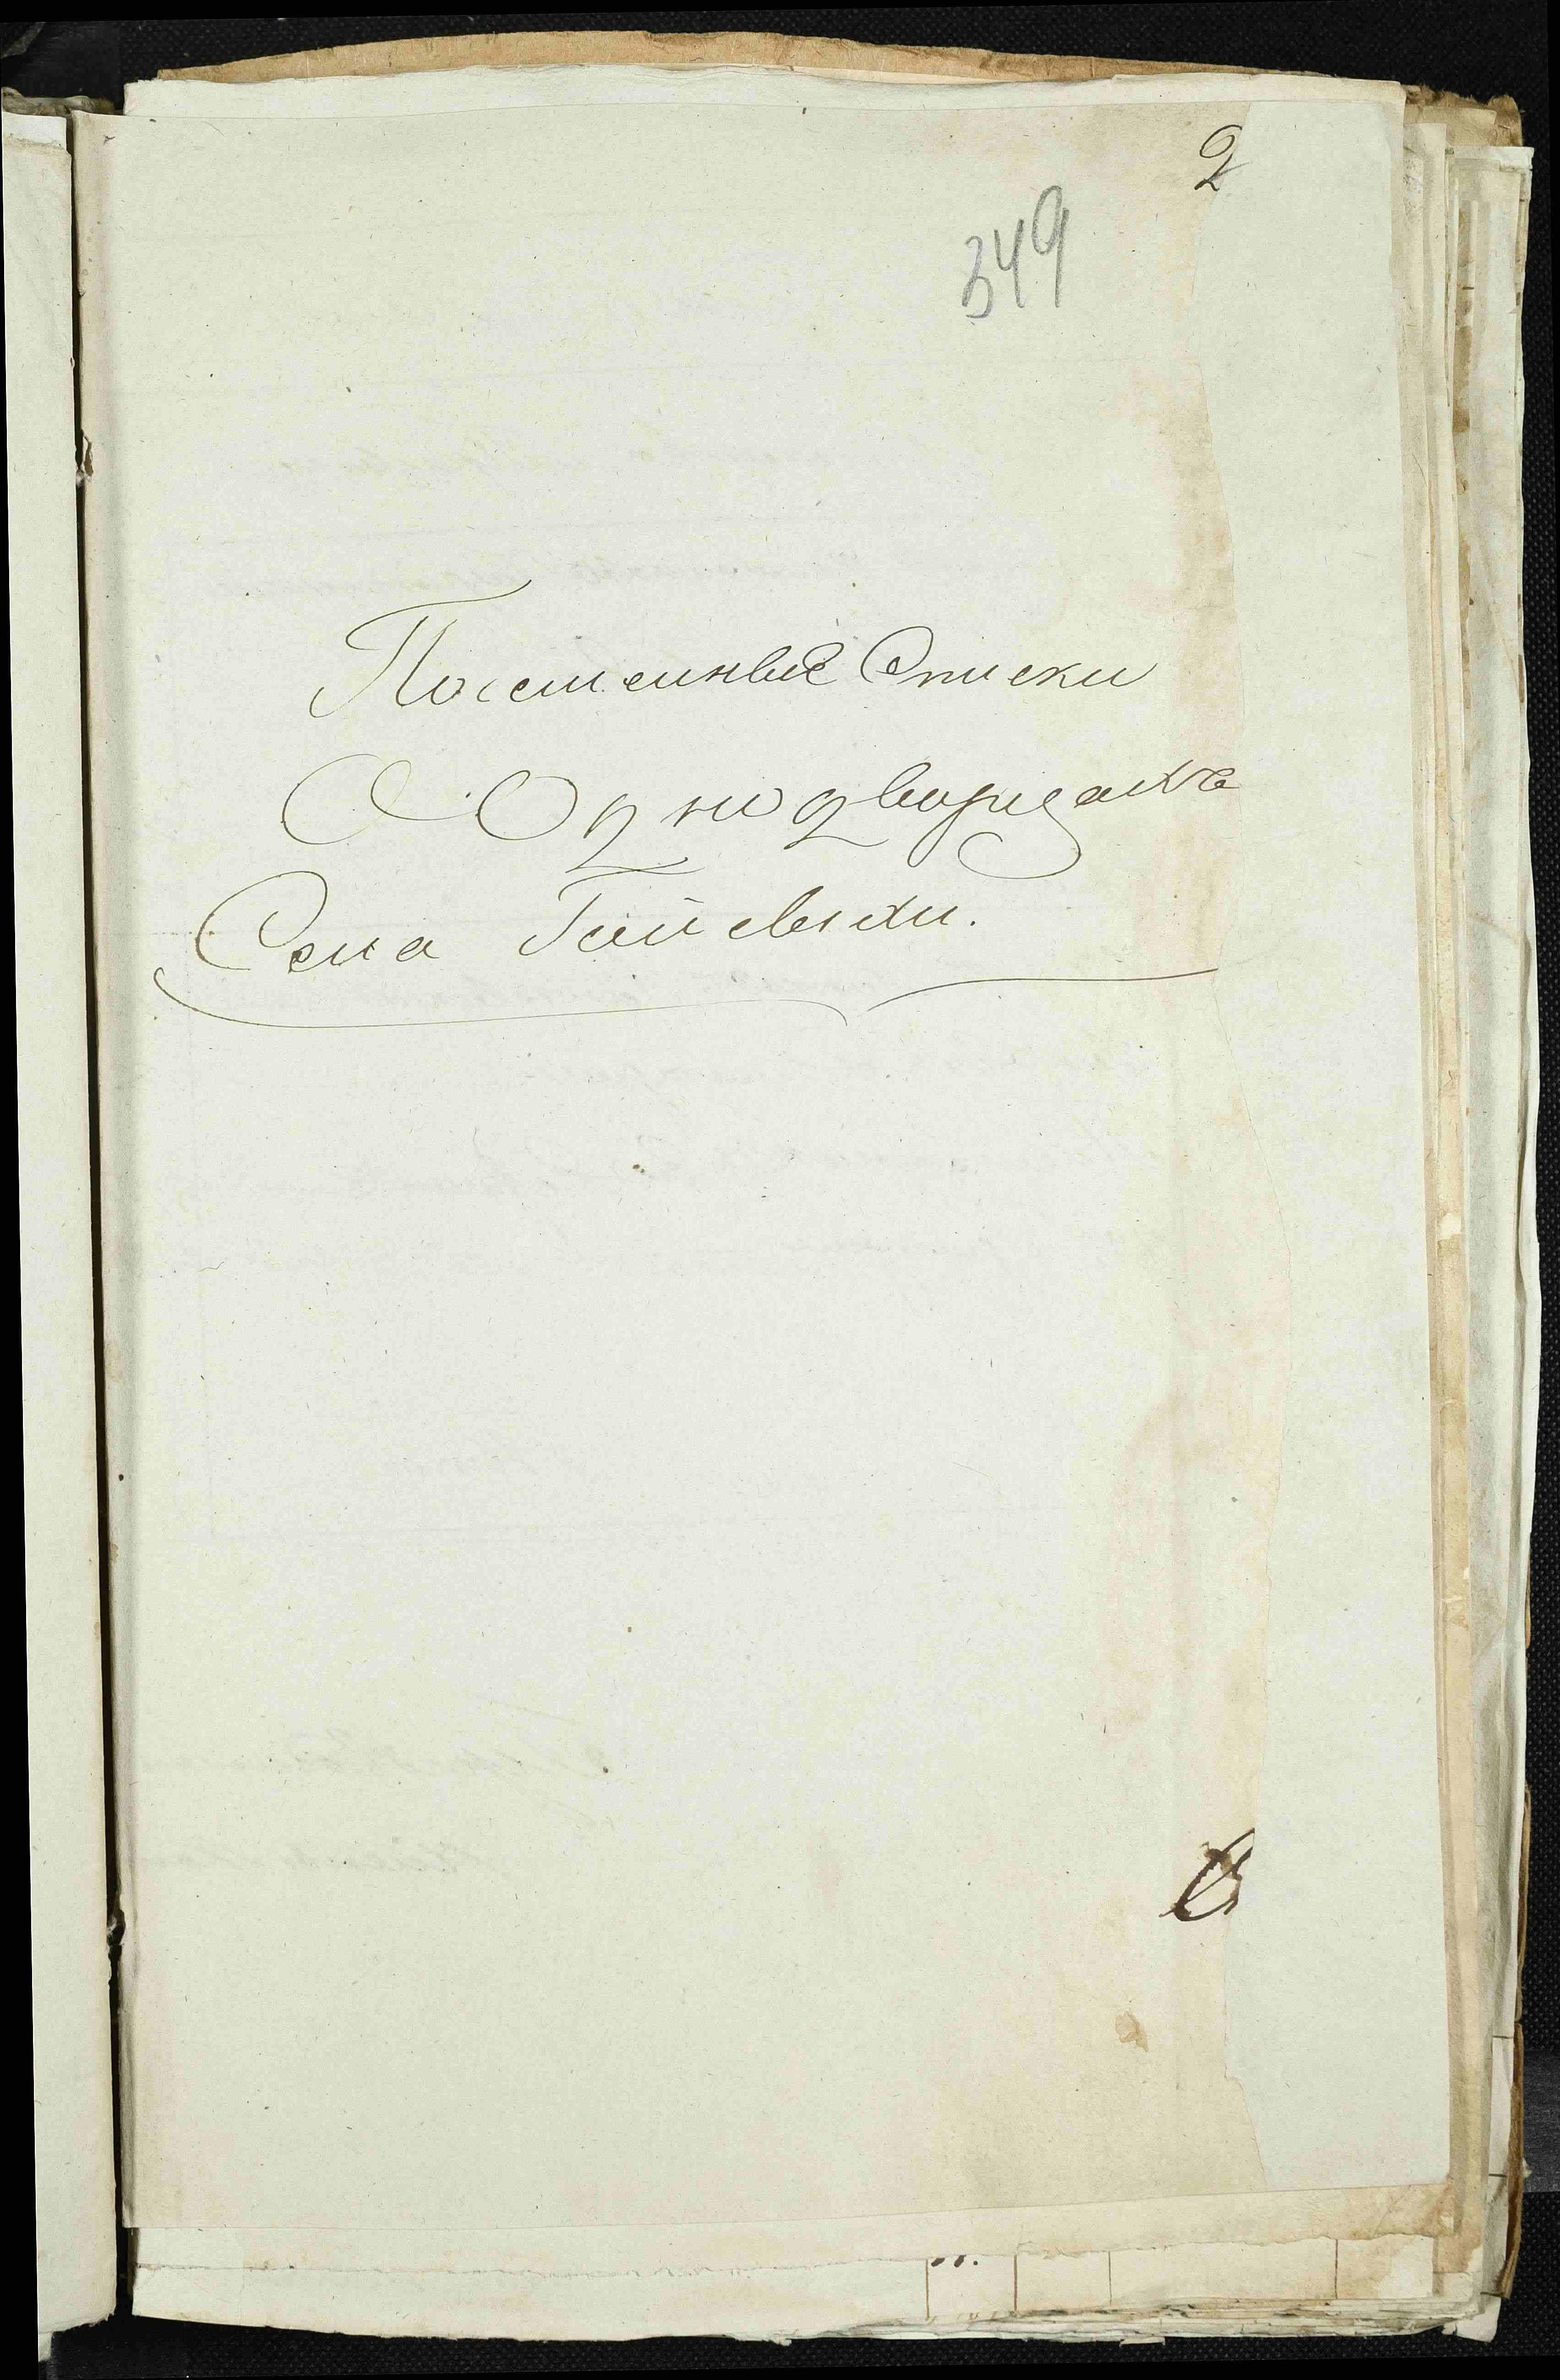 2
349
Посемейные Списки
О Однодворцахъ
Села Гаивки.